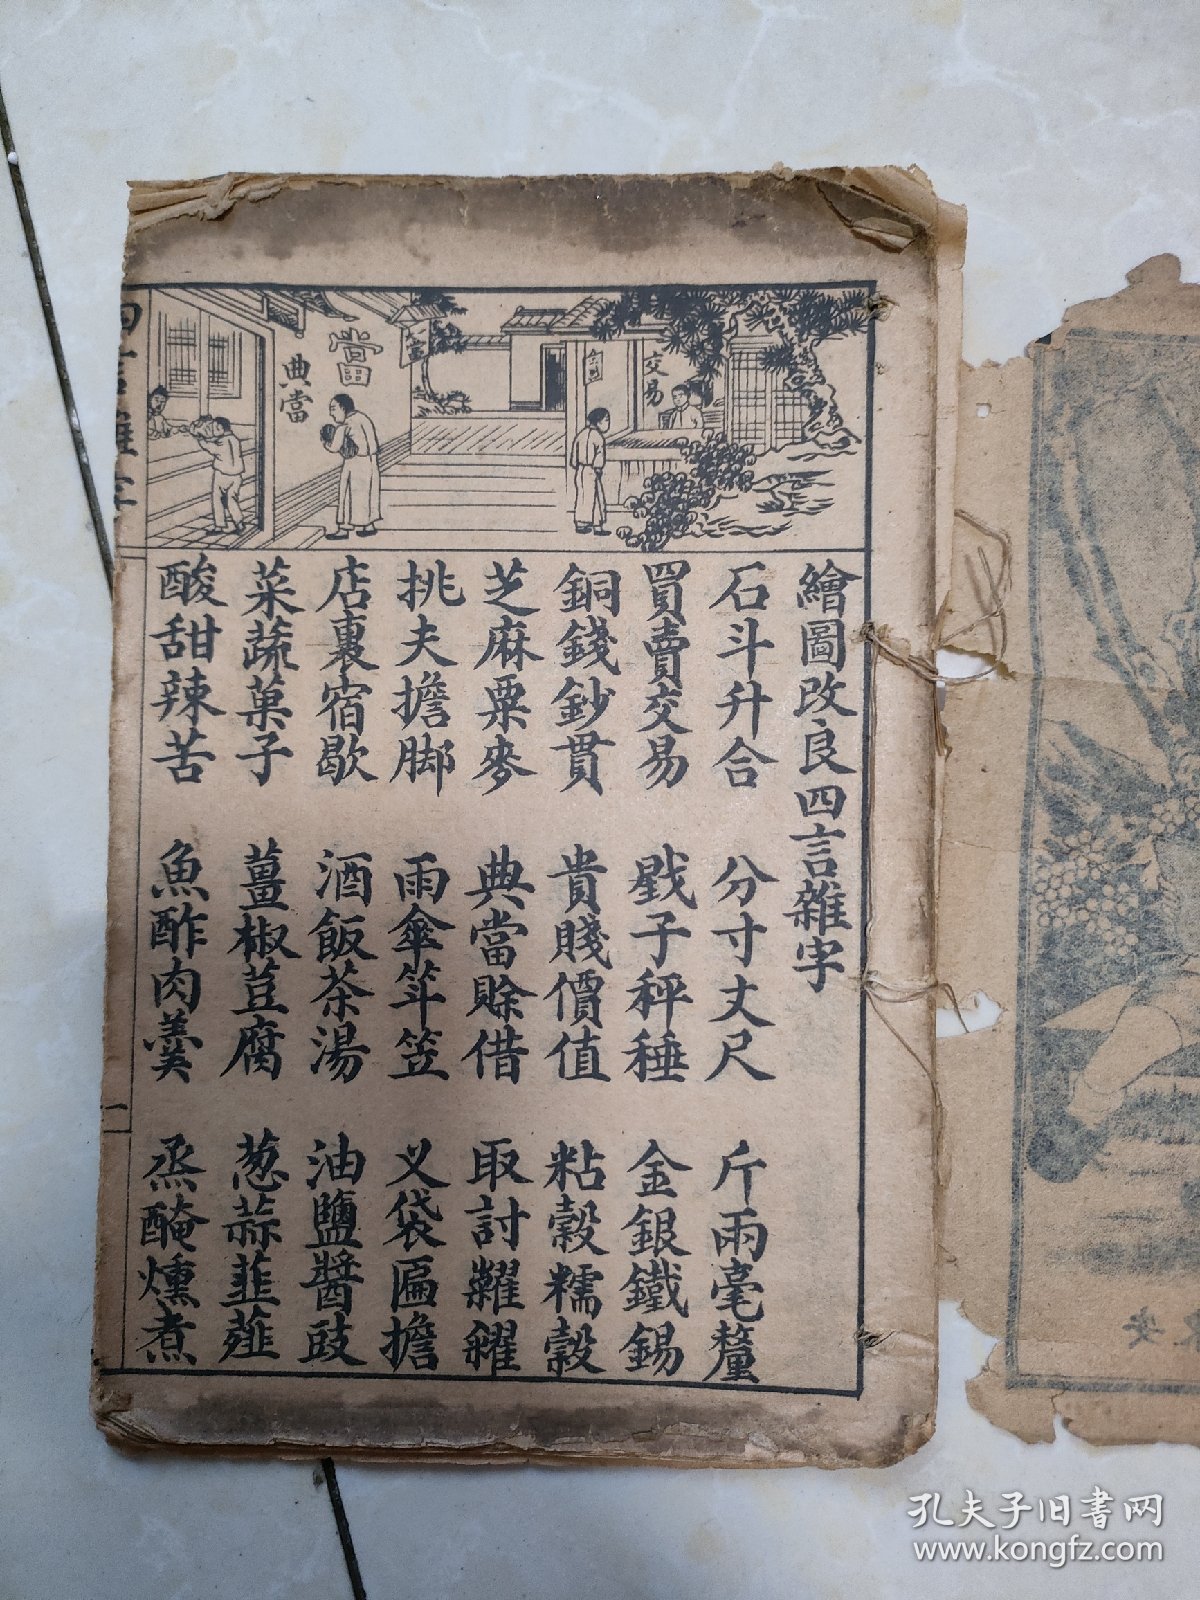 繪圖改良四言雜字
石斗升合 分寸丈尺 斤兩毫釐
買賣交易 戥子秤種 金銀鐵錫
銅錢鈔貫 貴賤價值 粘穀糯穀
芝麻粟麥 典當賒借 取討糶糴
挑夫擔脚 雨傘笠 义袋匾擔
店裏宿歇 酒飯茶湯 油鹽醬豉
菜蔬菓子 薑椒荳腐 葱蒜韮薤
酸甜辣苦 魚酢肉羹 烝醃燻煮
交易
當
典當
四言雜字
一
孔夫子旧书网
www.kongfz.com